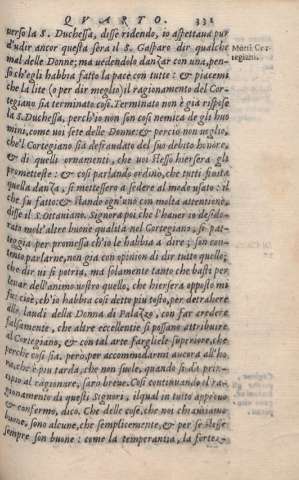 QVARTO. 331
verso la S. Duchessa, disse ridendo, io aspettaua pur
d'udir ancor questa sera il S. Gasparo dir qualche
mal delle Donne; ma uedendolo danzar con una, pen-
so ch'egli habbia fatto la pace con tutte: & piacemi
che la lite (o per dir meglio) il ragionamento del Cor-
tegiano sia terminato così. Terminato non è già rispose
la S. Duchessa, perch'io non son così nemica de gli huo
mini, come voi sete delle Donne: & percio non voglio,
che'l Cortegiano sia defraudato del suo debito honore,
& di quelli ornamenti, che voi stesso hiersera gli
prometteste: & così parlando ordinò, che tutti finita
quella danza, si mettessero a sedere al modo usato: il
che fu fatto: & stando ogn'uno con molta attentione,
disse il S. Ottauiano. Signora poi che l'hauer io deside-
rato molt'altre buone qualità nel Cortegiano, si pat-
teggia per promessa ch'io le habbia a dire; son con-
tento parlarne, non già con opinion di dir tutto quello,
che dir ui si potria, ma solamente tanto che basti per
leuar dell'animo vostro quello, che hiersera opposto mi
fu; cioè, ch'io habbia così detto più tosto, per detrahere
alle laudi della Donna di Palazzo, con far credere
falsamente, che altre eccellentie si possano attribuire
al Cortegiano, & con tal arte fargliele superiore, che
perche così sia. però, per accommodarmi ancora all'ho-
ra, che è più tarda, che non suole, quando si dà prin-
cipio al ragionare, sarò breue. Così continuando il ra-
gionamento di questi Signori, ilqual in tutto approuo
& confermo, dico. Che delle cose, che noi chiamiamo
buone, sono alcune, che semplicemente, & per se stesse
sempre son buone: come la temperantia, la fortez-
Morti Cor-
tegiani.